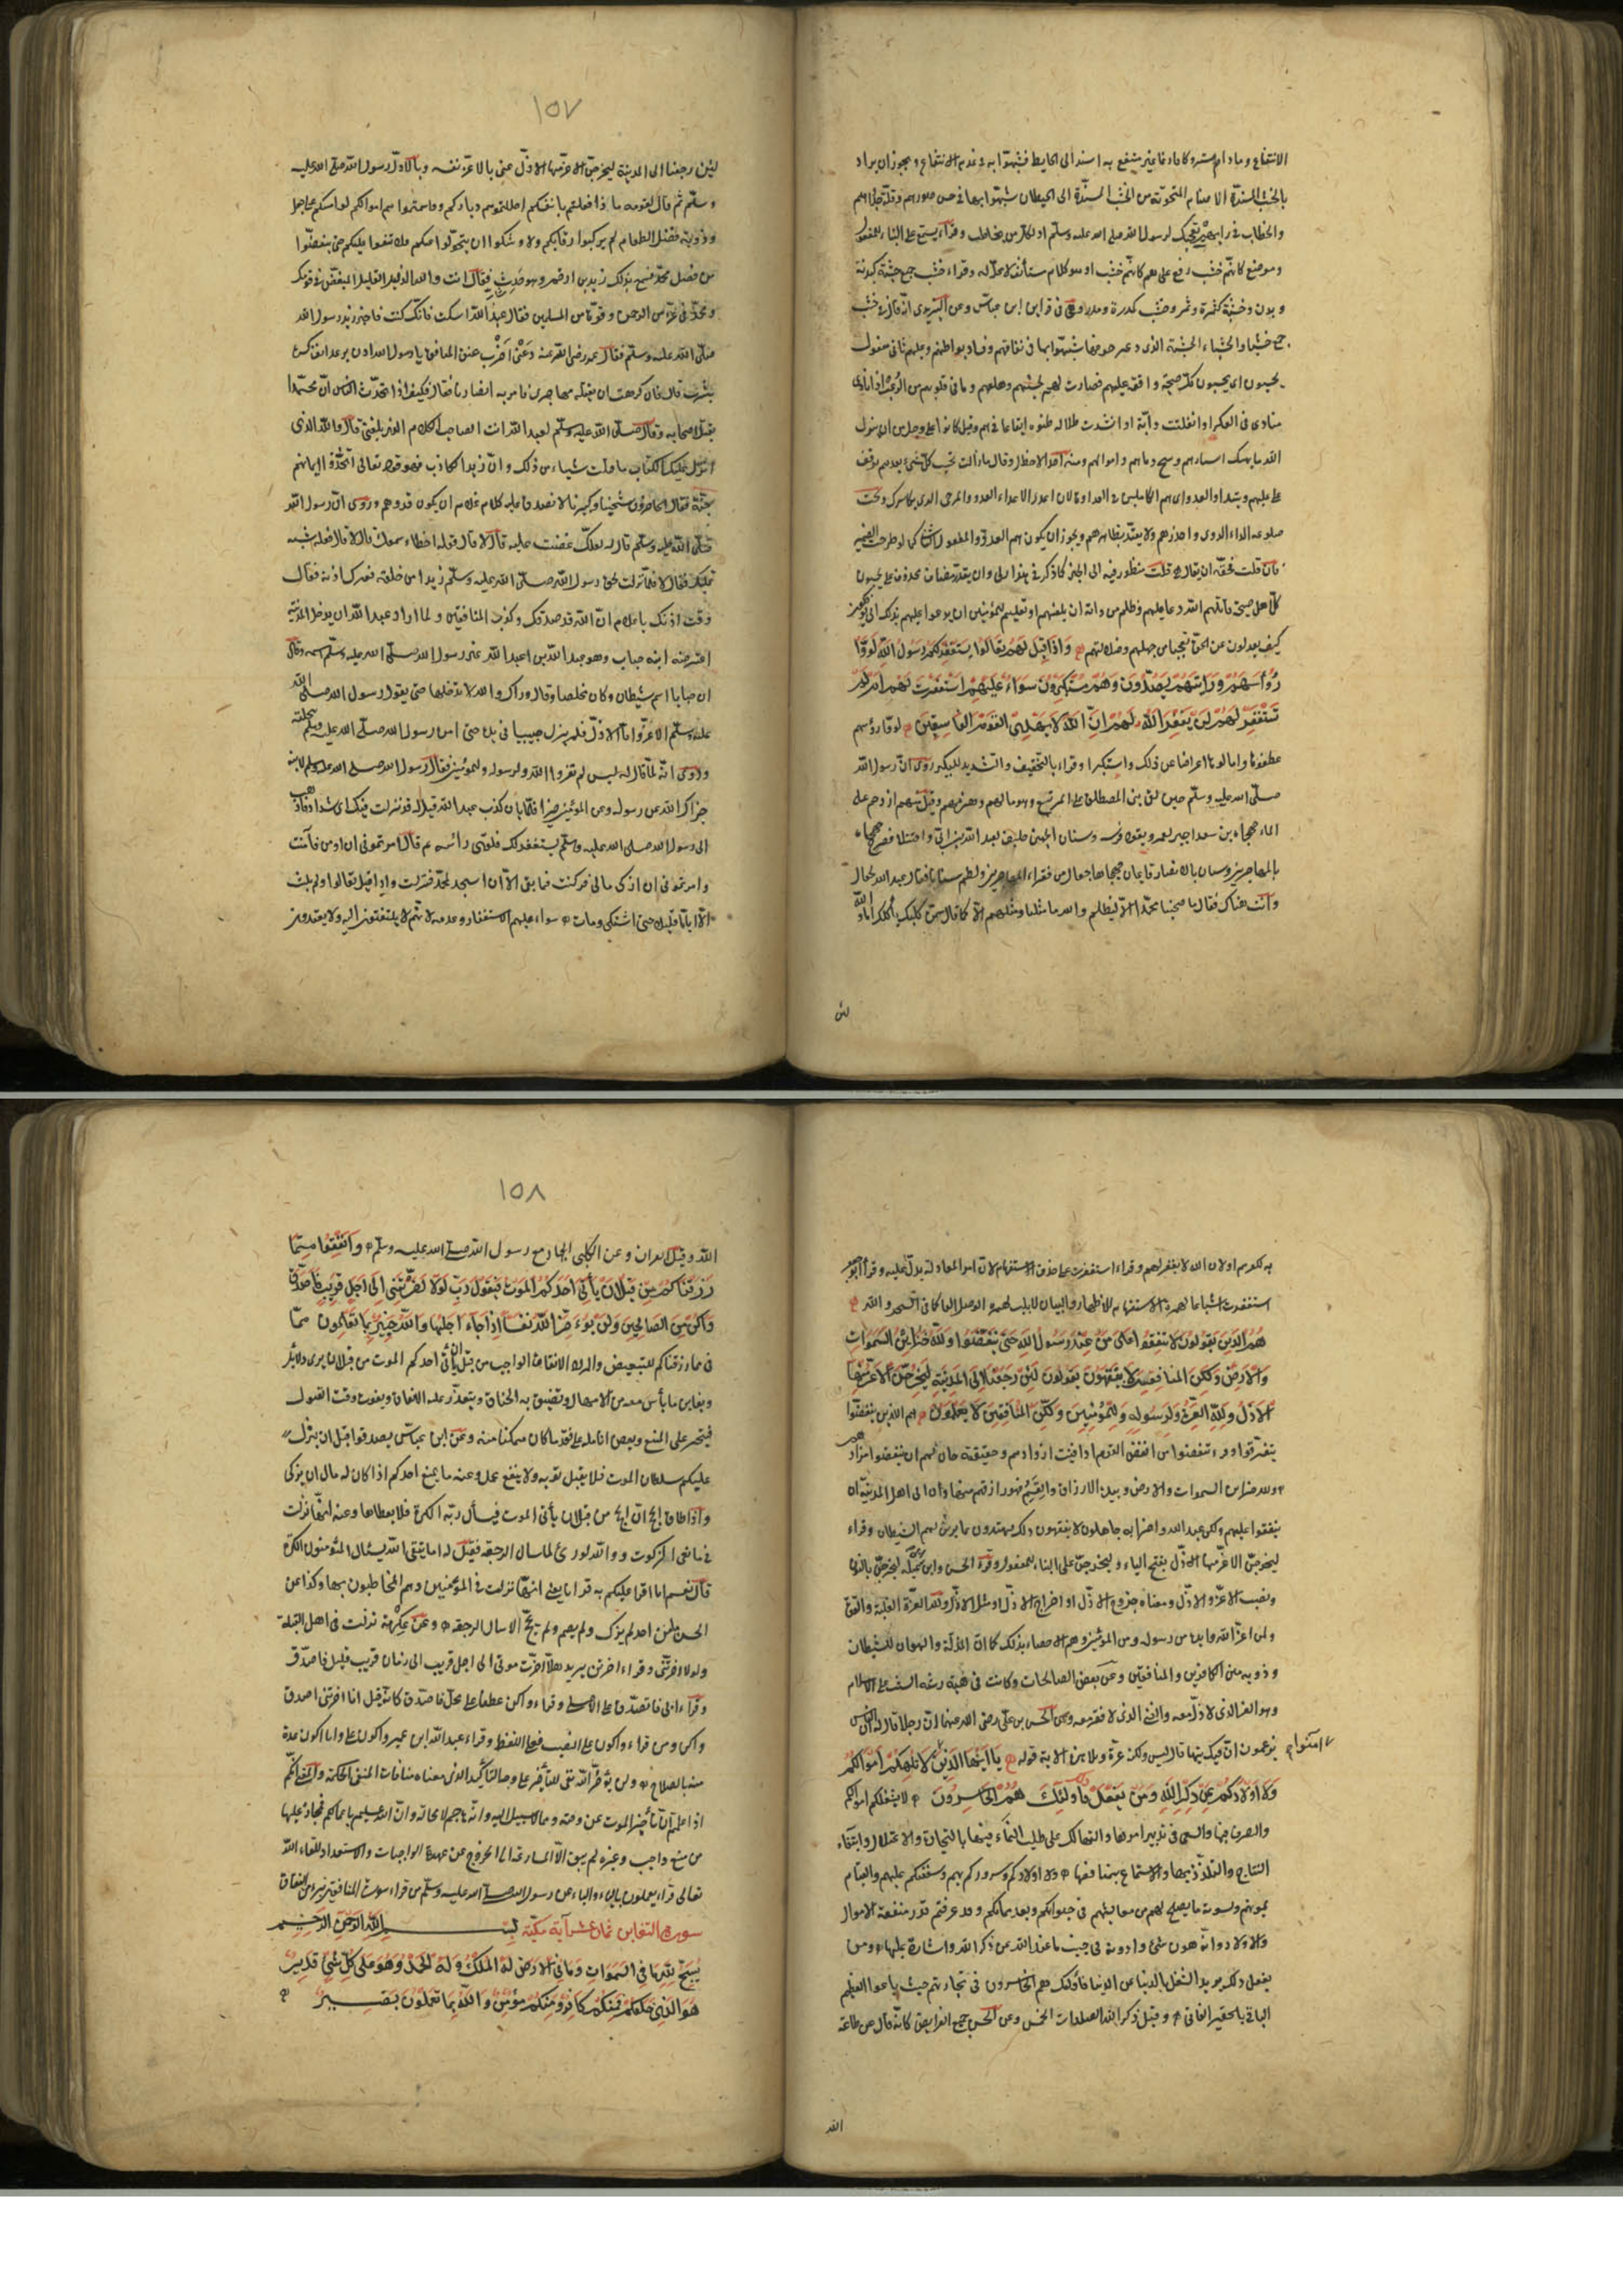 الانتفاع وما دام متروكا فارغا غير منتفع به اسند الى الحايط فشبهوا به في عدم الانتفاع ويجوز ان يراد
بالخشب المسندة الاصنام المنحوتة من الخشب المسندة الى الحيطان شبهوا بها في حسن صورهم وقلة جدواهم
والخطاب في رايتهم تعجبك لرسول الله صلى الله عليه وسلم او لكل من يخاطب وقراء يسمع على البناء للمفعول
وموضع كانهم خشب رفع على هم كانهم خشب او هو كلام مستأنف لا محل له وقراء خشب جمع خشبة كبدنة
وبدن وخشبة كثمرة وثمر وخشب كمدرة ومدر وهي في قراءة ابن عباس وعن اليزيدي انه قال في خشب
جمع خشباء والخشباء الخشبة التي دعر جوفها شبهوا بها في نفاقهم وفساد بواطنهم وعليهم ثاني مفعولي
يحسبون اي يحسبون كل صيحة واقعة عليهم وضارة لهم لجبنهم وهلعهم وما في قلوبهم من الرعب اذا نادى
مناد في العسكر او انفلتت دابة او انشدت ضالة ظنوه ايقاعا بهم وقيل كانوا على وجل من ان ينزل
الله ما يهتك استارهم ويبيح دماءهم واموالهم ومنه اخذ الاخطل وقال ما زلت تحسب كل شيء بعدهم يوقف
على عليهم ويبتدأ هم العدو اي هم الكاملون في العداوة لان اعدى الاعداء العدو المداجي الذي يكاشرك وتحت
ضلوعه الداء الدوي فاحذرهم ولا تغتر بظاهرهم ويجوز ان يكون هم العدو المفعول الثاني كما لو طرحت الضمير
فان قلت فحقه ان يقال هي قلت منظور فيه الى الخبر كما ذكر في هذا ربي وان يقدر مضاف محذوف على يحسبون
كل اهل صيحة قاتلهم الله دعاء عليهم وطلب من ذاته ان يلعنهم او تعليم للمؤمنين ان يدعوا عليهم بذلك انى يؤفكون
كيف يعدلون عن الحق تعجبا من جهلهم وضلالتهم وَاِذَا قِيلَ لَهُمْ تَعَالَوْا يَسْتَغْفِرْ لَكُمْ رَسُولُ اللهِ لَوَّوْا
رُؤُسَهُمْ وَرَاَيْتَهُمْ يَصُدُّونَ وَهُمْ مُسْتَكْبِرُونَ سَوَاءٌ عَلَيْهِمْ اَسْتَغْفَرْتَ لَهُمْ اَمْ لَمْ
تَسْتَغْفِرْ لَهُمْ لَنْ يَغْفِرَ اللهُ لَهُمْ اِنَّ اللهَ لَا يَهْدِي الْقَوْمَ الْفَاسِقِينَ لووا رؤسهم
عطفوها وامالوها اعراضا عن ذلك واستكبارا وقراء بالتخفيف والتشديد للتكثير روى ان رسول الله
صلى الله عليه وسلم حين لقي بني المصطلق على المريسيع وهو ماء لهم وهزمهم وقتلهم ازدحم على
الماء جهجاه بن سعيد اجير لعمر يقود فرسه وسنان الجهني حليف لعبد الله بن ابي واقتتلا فصرخ جهجاه
بالمهاجرين وسنان بالانصار فاعان جهجاها جعال من فقراء المهاجرين ولطم سنانا فقال عبد الله لجعال
وانت هناك فقال ما صحبنا محمدا الا لنلطم والله ما مثلنا ومثلهم الا كما قال سمن كلبك يأكلك اما والله
لئن
١٥٧
لئن رجعنا الى المدينة ليخرجن الاعز منها الاذل عنى بالاعز نفسه وبالاذل رسول الله صلى الله عليه
وسلم ثم قال لقومه ماذا فعلتم بانفسكم احللتموهم بلادكم وقاسمتموهم اموالكم اما والله لو امسكتم عن جعال
وذويه فضل الطعام لم يركبوا رقابكم ولاوشكوا ان يتحولوا عنكم فلا تنفقوا عليهم حتى ينفضوا
من حول محمد فسمع بذلك زيد بن ارقم وهو حدث فقال انت والله الذليل القليل المبغض في قومك
ومحمد في عز من الرحمن وقوة من المسلمين فقال عبد الله اسكت فانما كنت العب فاخبر زيد رسول الله
صلى الله عليه وسلم فقال عمر رضى الله عنه دعني اضرب عنق المنافق يا رسول الله فقال اذن ترعد انف كثيرة
بيثرب قال فان كرهت ان يقتله مهاجرى فامر به انصاريا فقال فكيف اذا تحدث الناس ان محمدا
يقتل اصحابه وقال صلى الله عليه وسلم لعبد الله انت صاحب الكلام الذي بلغني قال والله الذي
انزل عليك الكتاب ما قلت شيئا من ذلك وان زيدا لكاذب فهو قوله تعالى اتخذوا ايمانهم
جنة فقال الحاضرون شيخنا وكبيرنا لا تصدق عليه كلام غلام عسى ان يكون قد وهم وروى ان رسول الله
صلى الله عليه وسلم قال له لعلك غضبت عليه قال لا قال فلعله اخطأ سمعك قال لا قال فلعله شبه
عليك قال لا فلما نزلت لحق رسول الله صلى الله عليه وسلم زيدا من خلفه فعرك اذنه فقال
وفت اذنك يا غلام ان الله قد صدقك وكذب المنافقين ولما اراد عبد الله ان يدخل المدينة
اعترضه ابنه حباب وهو عبد الله بن عبد الله غير رسول الله صلى الله عليه وسلم اسمه وقال
ان حبابا اسم شيطان وكان مخلصا وقال وراك والله لا تدخلها حتى يقول رسول الله صلى الله
عليه وسلم الاعز وانا الاذل فلم يزل حبيسا في يده حتى امره رسول الله صلى الله عليه وسلم بتخليته
وروى انه لما قال له لئن لم تقر لله ولرسوله وللمؤمنين فقال رسول الله صلى الله عليه وسلم لابنه
جزاك الله عن رسوله وعن المؤمنين خيرا فلما بان كذب عبد الله قيل له قد نزلت فيك اي شداد فاذهب
الى رسول الله صلى الله عليه وسلم يستغفر لك فلوى رأسه ثم قال امرتموني ان اومن فآمنت
وامرتموني ان ازكي مالي فزكيت فما بقي الا ان اسجد لمحمد فنزلت واذا قيل لهم تعالوا ولم يلبث
الا اياما قلائل حتى اشتكى ومات سواء عليهم الاستغفار وعدمه لانهم لا يلتفتون اليه ولا يعتدون
به لكفرهم او لان الله لا يغفر لهم وقراء استغفرت على حذف حرف الاستفهام لان ام المعادلة تدل عليه وقرأ ابو جعفر
استغفرت اشباعا لهمزة الاستفهام للاظهار والبيان لا قلبا لهمزة الوصل الفا كما في السحر والله
هُمُ الَّذِينَ يَقُولُونَ لَا تُنْفِقُوا عَلَى مَنْ عِنْدَ رَسُولِ اللهِ حَتَّى يَنْفَضُّوا وَلِلهِ خَزَائِنُ السَّمَوَاتِ
وَالْاَرْضِ وَلَكِنَّ الْمُنَافِقِينَ لَا يَفْقَهُونَ يَقُولُونَ لَئِنْ رَجَعْنَا اِلَى الْمَدِينَةِ لَيُخْرِجَنَّ الْاَعَزُّ مِنْهَا
الْاَذَلَّ وَلِلهِ الْعِزَّةُ وَلِرَسُولِهِ وَلِلْمُؤْمِنِينَ وَلَكِنَّ الْمُنَافِقِينَ لَا يَعْلَمُونَ هم الذين ينفضوا
يتفرقوا وقرء ينفضوا من انفض القوم اذا فنيت ازوادهم وحقيقته حان لهم ان ينفضوا مزاودهم
ولله خزاين السموات والارض وبيده الارزاق والقسم فهو رازقهم منها وان ابى اهل المدينة ان
ينفقوا عليهم ولكن عبد الله واضرابه جاهلون لا يفقهون ذلك فيهذون بما يزين لهم الشيطان وقراء
ليخرجن الاعز منها الاذل بفتح الياء وليخرجن على البناء للمفعول وقرء الحسن وابن ابي عبلة لنخرجن بالنون
ونصب الاعز والاذل ومعناه خروج الاذل او اخراج الاذل او مثل الاذل ولله العزة الغلبة والقوة
ولمن اعزه الله وايده من رسوله ومن المؤمنين وهم الاخصاء بذلك كما ان المذلة والهوان للشيطان
وذويه من الكافرين والمنافقين وعن بعض الصالحات وكانت في هيئة رثة الست على الاسلام
وهو العز الذي لا ذل معه والغنى الذي لا فقر معه وعن الحسن بن على رضى الله عنهما ان رجلا قال له ان الناس
يزعمون ان فيك تيها قال ليس ولكنه عزة وتلا هذه الاية قوله يَا اَيُّهَا الَّذِينَ لَا تُلْهِكُمْ اَمْوَالُكُمْ
امنوا
وَلَا اَوْلَادُكُمْ عَنْ ذِكْرِ اللهِ وَمَنْ يَفْعَلْ ذلك فَاُولَئِكَ هُمُ الْخَاسِرُونَ لا يشغلكم اموالكم
والتصرف فيها والسعي في تدبير امرها والتهالك على طلب النماء فيها بالتجارة والاغتلال وابتغاء
النتاج والتلذذ بها والاستمتاع بمنافعها ولا اولادكم وسروركم بهم وشفقتكم عليهم والقيام
بمونهم وتسوية ما يصلحهم من معايشهم في حيوتكم وبعد مماتكم وقد عرفتم قدر منفعة الاموال
والاولاد وانه اهون شئ وادونه في جنب ما عند الله عن ذكر الله وايثاره عليها ومن
يفعل ذلك يريد الشغل بالدنيا عن الدين فاولئك هم الخاسرون في تجارتهم حيث باعوا العظيم
الباقي بالحقير الفاني وقيل ذكر الله الصلوات الخمس وعن الحسن جميع الفرايض كانه قال عن طاعة
الله
١٥٨
الله وقيل القران وعن الكلبي الجهاد مع رسول الله صلى الله عليه وسلم وَاَنْفِقُوا مِمَّا
رَزَقْنَاكُمْ مِنْ قَبْلِ اَنْ يَأْتِيَ اَحَدَكُمُ الْمَوْتُ فَيَقُولَ رَبِّ لَوْلَا اَخَّرْتَنِي اِلَى اَجَلٍ قَرِيبٍ فَاَصَّدَّقَ
وَاَكُنْ مِنَ الصَّالِحِينَ وَلَنْ يُؤَخِّرَ اللهُ نَفْسًا اِذَا جَاءَ اَجَلُهَا وَاللهُ خَبِيرٌ بِمَا تَعْمَلُونَ من
في مما رزقناكم للتبعيض والمراد الانفاق الواجب من قبل ان يأتي احدكم الموت من قبل ان يرى دلائل
ويعاين ما يأس معه من الامهال ويضيق به الخناق ويتعذر عليه الانفاق ويفوت وقت القبول
فيتحسر على المنع ويعض انامله على فقد ما كان متمكنا منه وعن ابن عباس تصدقوا قبل ان ينزل
عليكم سلطان الموت فلا يقبل توبة ولا ينفع عمل وعنه ما يمنع احدكم اذا كان له مال ان يزكي
واذا طاق الحج ان يحج من قبل ان يأتي الموت فيسأل ربه الكرة فلا يعطاها وعنه انها نزلت
في مانعي الزكوة ووالله لو رأى خيرا لما سال الرجعة فقيل له اما تتقي الله يسئال المؤمنون الكرة
قال نعم انا اقرا عليكم به قرانا يعني انها نزلت في المؤمنين وهم المخاطبون بها وكذا عن
الحسن ما من احد لم يزك ولم يصم ولم يحج الا سال الرجعة وعن عكرمة نزلت في اهل القبلة
ولولا اخرتني وقراء اخرتن يريد هلا اخرت موتي الى اجل قريب الى زمان قريب قليل فاصدق
وقراء ابي فاتصدق على الاصل وقراء واكن عطفا على محل فاصدق كانه قيل ان اخرتني اصدق
واكن ومن قراء واكون على النصب فعلى اللفظ وقراء عبد الله ابن عمير واكون على وانا اكون عدة
منه بالصلاح ولن يؤخر الله نفي للتأخير على وجه التاكيد الذي معناه منافات المنفي الحكمة والمعنى انكم
اذا علمتم ان تأخير الموت عن وقته مما لا سبيل اليه وانه هاجم لا محالة وان الله عليم باعمالكم فمجاز عليها
من منع واجب وغيره لم يبق الا المسارعة الى الخروج عن عهدة الواجبات والاستعداد للقاء الله
تعالى وقراء يعملون بالياء والتاء عن رسول الله صلى الله عليه وسلم من قراء سورة المنافقين برئ من النفاق
سورة التغابن ثمان عشر آية مكية بسم الله الرحمن الرحيم
يُسَبِّحُ لِلهِ مَا فِي السَّمَوَاتِ وَمَا فِي الْاَرْضِ لَهُ الْمُلْكُ وَلَهُ الْحَمْدُ وَهُوَ عَلَى كُلِّ شَيْءٍ قَدِيرٌ
هُوَ الَّذِي خَلَقَكُمْ فَمِنْكُمْ كَافِرٌ وَمِنْكُمْ مُؤْمِنٌ وَاللهُ بِمَا تَعْمَلُونَ بَصِيرٌ